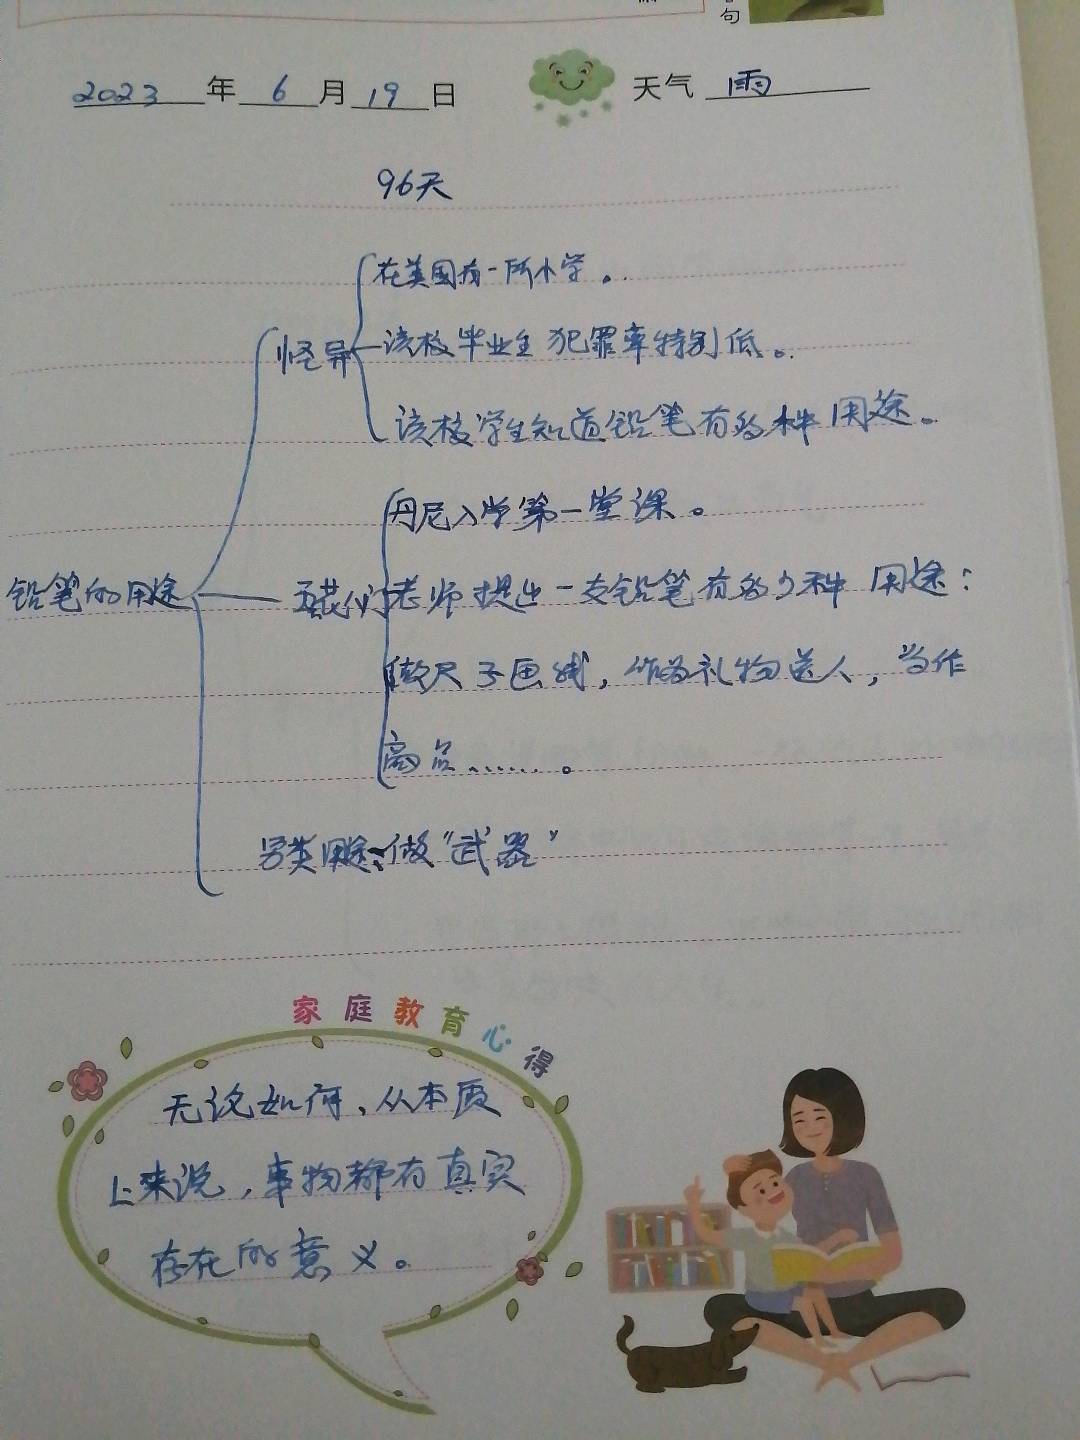 句
2023年6月19日 天气 雨
96天
在美国有一所小学。
怪异 该校毕业生犯罪率特别低。
该校学生知道铅笔有多种用途。
丹尼入学第一堂课。
铅笔的用途 老师提出一支铅笔有多少种用途：
做尺子画线，作为礼物送人，当作
商品……。
另类用途、做“武器”
家庭教育心得
无论如何、从本质
上来说，事物都有真实
存在的意义。